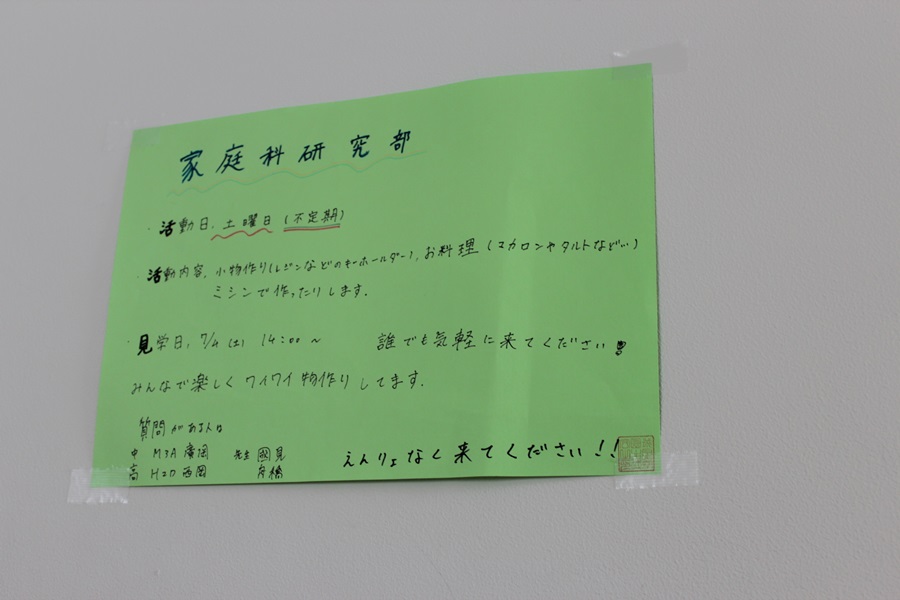 家庭科研究部
・活動日、土曜日(不定期)
・活動内容、小物作り(レジンなどのキーホルダー)、お料理(マカロンやタルトなど…)
ミシンで作ったりします.
・見学日、7/4(土) 14:00～ 誰でも気軽に来てください!!
みんなで楽しくワイワイ物作りしてます.
質問がある人は
中 M3A 廣岡 先生 國見
高 H2D 西岡 舟橋
えんりょなく来てください!!